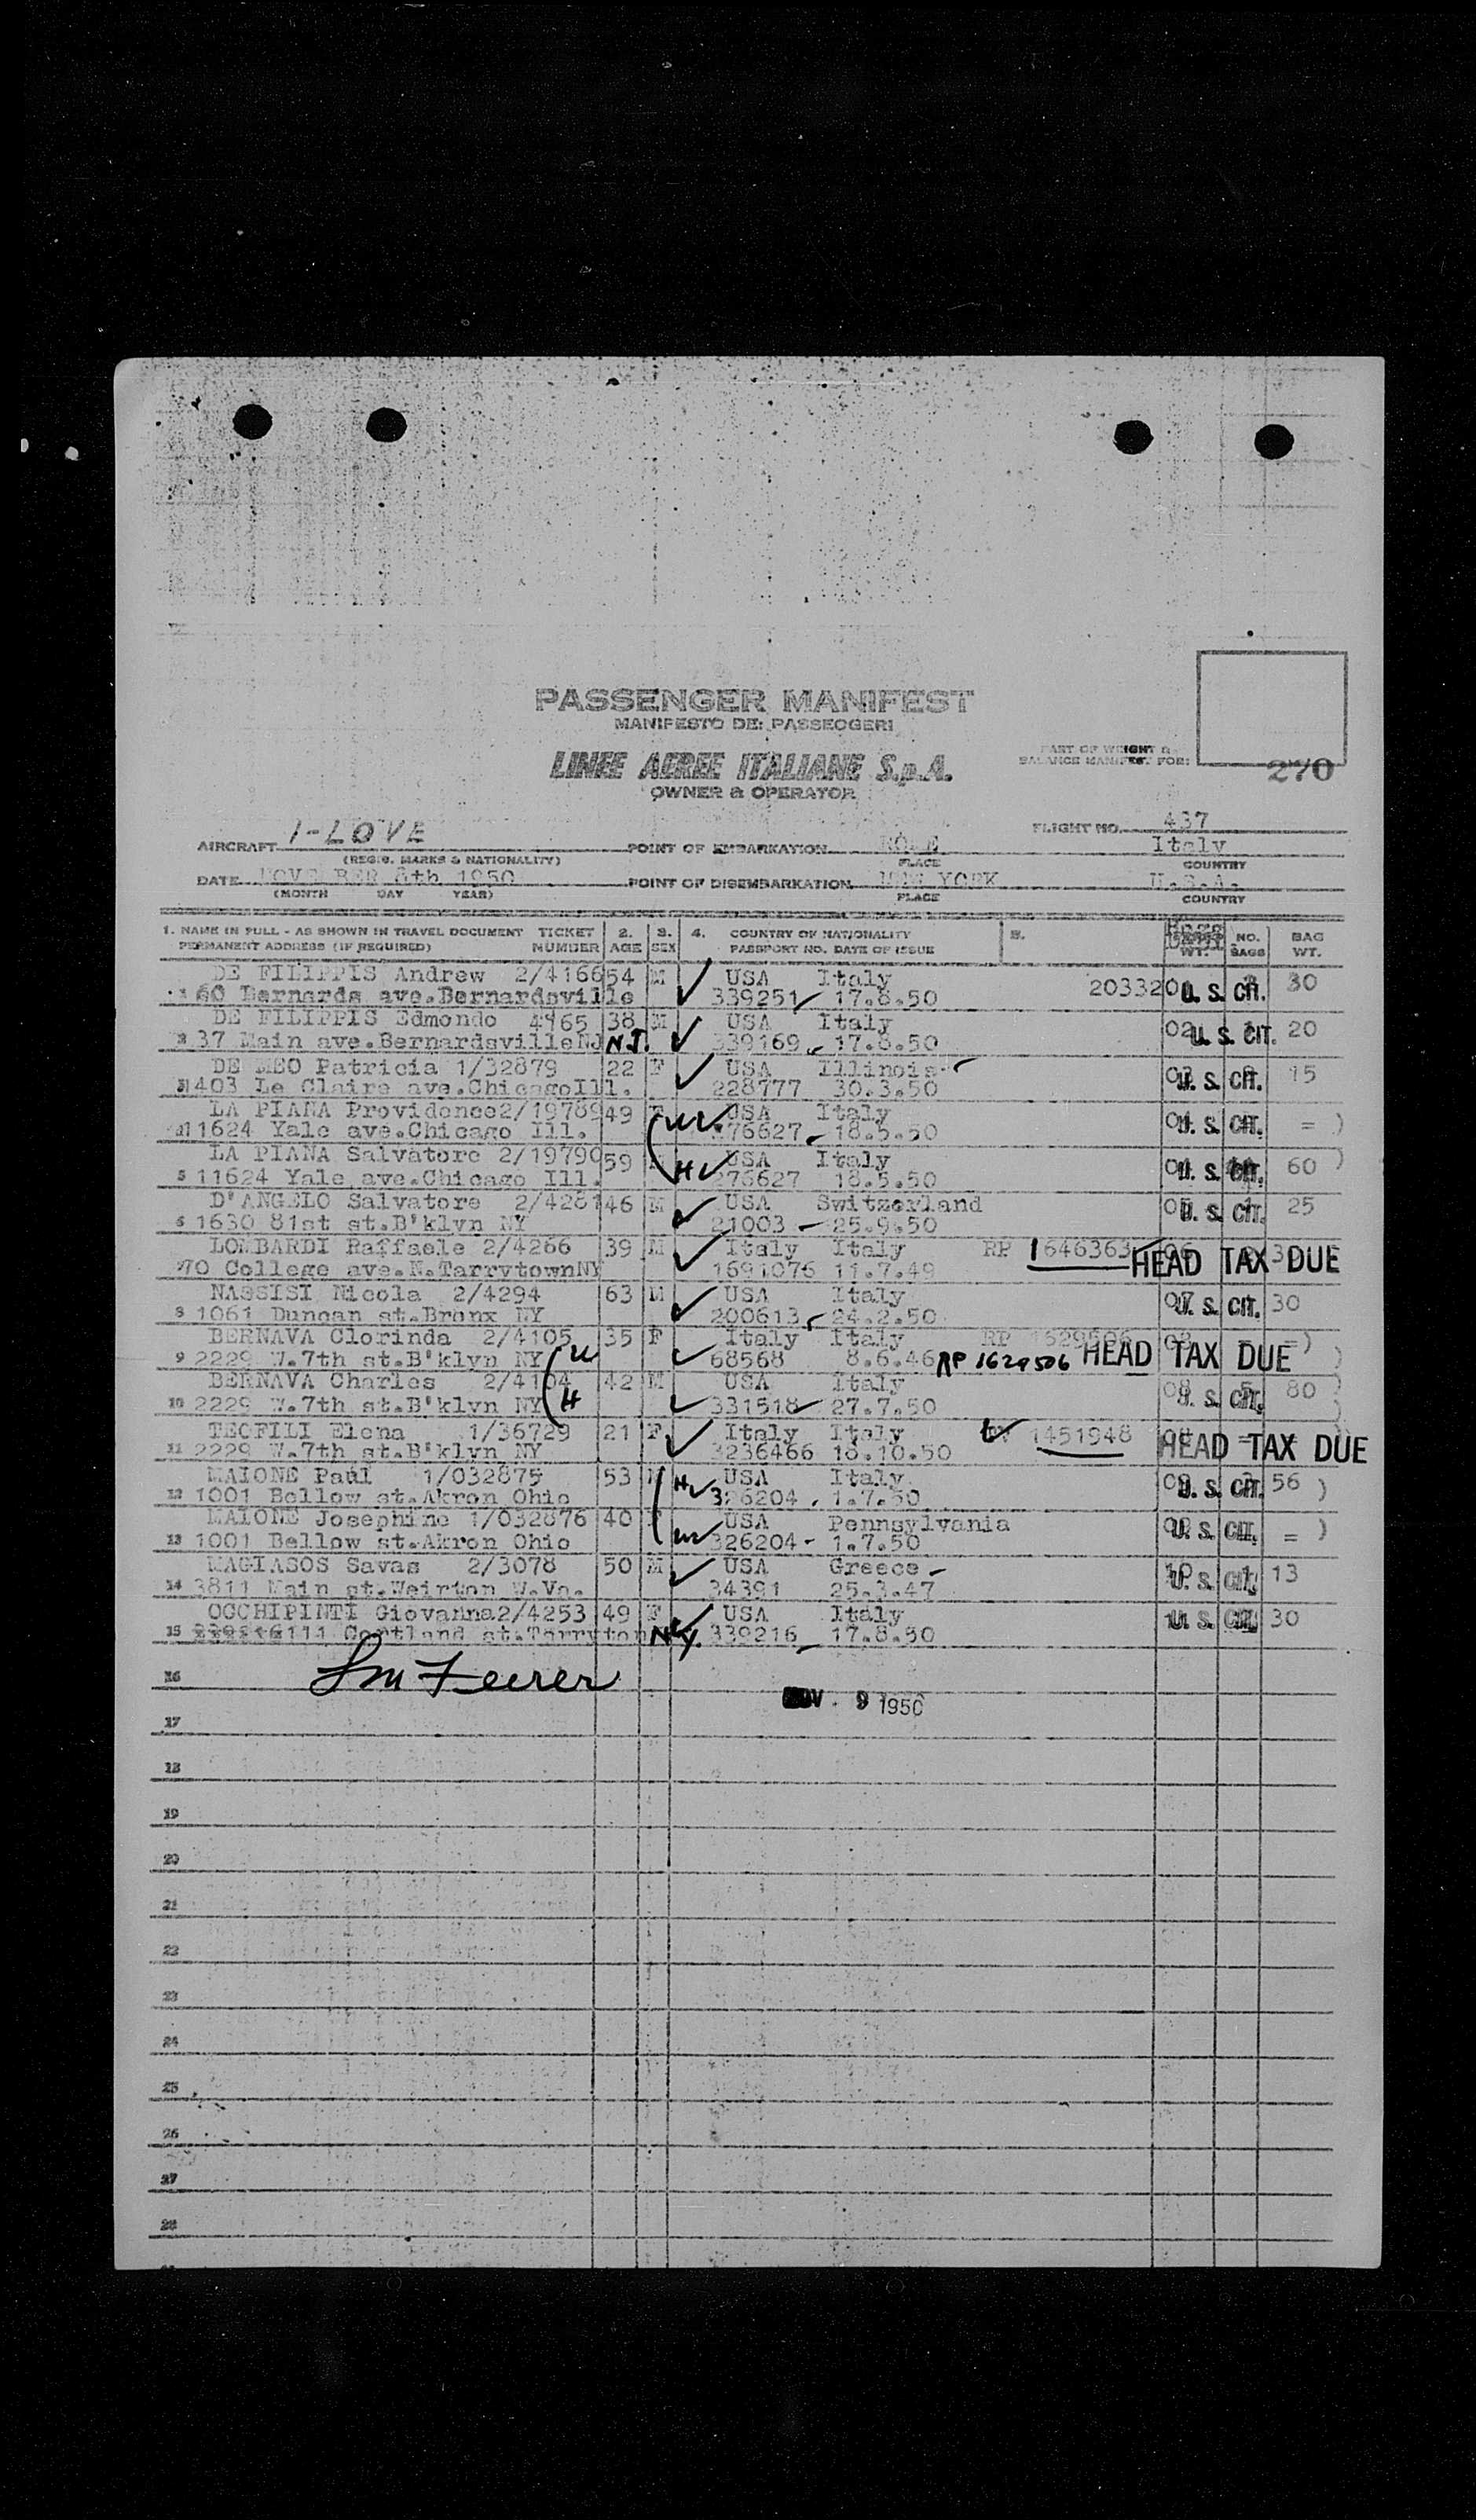 PASSENGER MANIFEST
MANIFESTO DEI PASSEGGERI
LINEE AEREE ITALIANE S.p.A.
OWNER & OPERATOR
PART OF WEIGHT &
BALANCE MANIFEST FOR:
270
AIRCRAFT I-LOVE POINT OF EMBARKATION ROME FLIGHT NO. 437
Italy
(REG'G. MARKS & NATIONALITY) PLACE COUNTRY
DATE NOVEMBER 8th 1950 POINT OF DISEMBARKATION NEW YORK U.S.A.
(MONTH DAY YEAR) PLACE COUNTRY
1. NAME IN FULL - AS SHOWN IN TRAVEL DOCUMENT TICKET 2. 3. 4. COUNTRY OF NATIONALITY 5. NO. BAG
PERMANENT ADDRESS (IF REQUIRED) NUMBER AGE SEX PASSPORT NO. DATE OF ISSUE WT. BAGS WT.
DE FILIPPIS Andrew 2/4166 54 M USA Italy
1 60 Bernards ave.Bernardsville 339251 17.8.50 203320 U. S. CIT. 30
DE FILIPPIS Edmondo 4465 38 M USA Italy
2 37 Main ave.Bernardsville NJ N.J. 339169 17.8.50 02 U. S. CIT. 20
DE MEO Patricia 1/32879 22 F USA Illinois
3 1403 Le Claire ave.Chicago Ill. 228777 30.3.50 U. S. CIT. 15
LA PIANA Providence 2/19789 49 W USA Italy
4 11624 Yale ave.Chicago Ill. 276627 18.5.50 U. S. CIT. = )
LA PIANA Salvatore 2/19790 59 USA Italy
5 11624 Yale ave.Chicago Ill. H 276627 18.5.50 U. S. CIT. 60 )
D'ANGELO Salvatore 2/4281 46 M USA Switzerland
6 1630 81st st.B'klyn NY 21003 25.9.50 U. S. CIT. 25
LOMBARDI Raffaele 2/4266 39 M Italy Italy RP 1646363 HEAD TAX DUE
70 College ave.N.Tarrytown NY 1691076 11.7.49
NASSISI Nicola 2/4294 63 M USA Italy
8 1061 Duncan st.Bronx NY 200613 24.2.50 07 U. S. CIT. 30
BERNAVA Clorinda 2/4105 35 F Italy Italy RP 1629506 = )
9 2229 W.7th st.B'klyn NY W 68568 8.6.46 RP 1629506 HEAD TAX DUE )
BERNAVA Charles 2/4104 42 M USA Italy 80 )
10 2229 W.7th st.B'klyn NY H 331518 27.7.50 U. S. CIT. )
TEOFILI Elena 1/36729 21 F Italy Italy 1451948 HEAD TAX DUE
11 2229 W.7th st.B'klyn NY 3236466 18.10.50
MAIONE Paul 1/032875 53 M H USA Italy
12 1001 Bellow st.Akron Ohio 326204 1.7.50 U. S. CIT. 56 )
MAIONE Josephine 1/032876 40 USA Pennsylvania
13 1001 Bellow st.Akron Ohio W 326204 1.7.50 U. S. CIT. = )
MAGIASOS Savas 2/3078 50 M USA Greece
14 3811 Main st.Weirton W.Va. 34391 25.3.47 U. S. CIT. 13
OCCHIPINTI Giovanna 2/4253 49 F USA Italy
15 111 Cortland st.Tarryton N.Y. 339216 17.8.50 U. S. CIT. 30
16
NOV. 9 1950
17
18
19
20
21
22
23
24
25
26
27
28